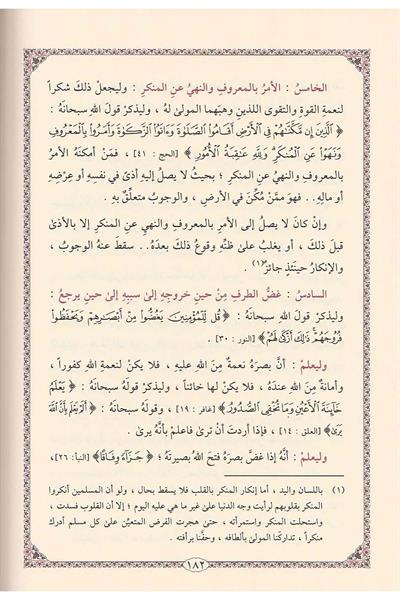 الخامسُ : الأمرُ بالمعروفِ والنهيُ عنِ المنكرِ : وليجعلْ ذلكَ شكراً
لنعمةِ القوةِ والتقوى اللذينِ وهبَهما المولىٰ لهُ ، وليذكرْ قولَ اللهِ سبحانَهُ :
﴿ الَّذِينَ إِن مَّكَّنَّاهُمْ فِي الْأَرْضِ أَقَامُوا الصَّلَوٰةَ وَءَاتَوُا الزَّكَوٰةَ وَأَمَرُوا بِالْمَعْرُوفِ
وَنَهَوْا عَنِ الْمُنكَرِ وَلِلَّهِ عَاقِبَةُ الْأُمُورِ ﴾ [الحج : ٤١] ، فمَنْ أمكنَهُ الأمرُ
بالمعروفِ والنهيُ عنِ المنكرِ ؛ بحيثُ لا يصلُ إليهِ أذىً في نفسِهِ أو عِرْضِهِ
أو مالِهِ . . فهوَ ممَّنْ مُكِّنَ في الأرضِ ، والوجوبُ متعلِّقٌ بهِ .
وإنْ كانَ لا يصلُ إلى الأمرِ بالمعروفِ والنهيِ عنِ المنكرِ إلا بالأذىٰ
قبلَ ذلكَ ، أو يغلبُ علىٰ ظنِّهِ وقوعُ ذلكَ بعدَهُ . . سقطَ عنهُ الوجوبُ ،
والإنكارُ حينَئذٍ جائزٌ(١) .
السادسُ : غضُّ الطرفِ مِنْ حينِ خروجِهِ إلىٰ سببِهِ إلىٰ حينِ يرجعُ :
وليذكرْ قولَ اللهِ سبحانَهُ : ﴿ قُل لِّلْمُؤْمِنِينَ يَغُضُّوا مِنْ أَبْصَارِهِمْ وَيَحْفَظُوا
فُرُوجَهُمْ ذَٰلِكَ أَزْكَىٰ لَهُمْ ﴾ [النور : ٣٠] .
وليعلمْ : أنَّ بصرَهُ نعمةٌ مِنَ اللهِ عليهِ ، فلا يكنْ لنعمةِ اللهِ كفوراً ،
وأمانةٌ مِنَ اللهِ عندَهُ ، فلا يكنْ لها خائناً ، وليذكرْ قولَهُ سبحانَهُ : ﴿ يَعْلَمُ
خَائِنَةَ الْأَعْيُنِ وَمَا تُخْفِي الصُّدُورُ ﴾ [غافر : ١٩] ، وقولَهُ سبحانَهُ : ﴿ أَلَمْ يَعْلَم بِأَنَّ اللَّهَ
يَرَىٰ ﴾ [العلق : ١٤] ، فإذا أردتَ أنْ ترىٰ فاعلمْ بأنَّهُ يرىٰ .
وليعلمْ : أنَّهُ إذا غضَّ بصرَهُ فتحَ اللهُ بصيرتَهُ ؛ ﴿ جَزَاءً وِفَاقًا ﴾ [النبأ : ٢٦] ،
(١) باللسان واليد ، أما إنكار المنكر بالقلب فلا يسقط بحال ، ولو أن المسلمين أنكروا
المنكر بقلوبهم لرأيت وجه الدنيا على غير ما هي عليه اليوم ؛ إلا أن القلوب فسدت ،
واستحلت المنكر واستمرأته ، حتىٰ هجرت الفرض المتعيِّن علىٰ كل مسلم أدرك
منكراً ، تداركنا المولىٰ بألطافه ، وحفَّنا برأفته .
١٨٢